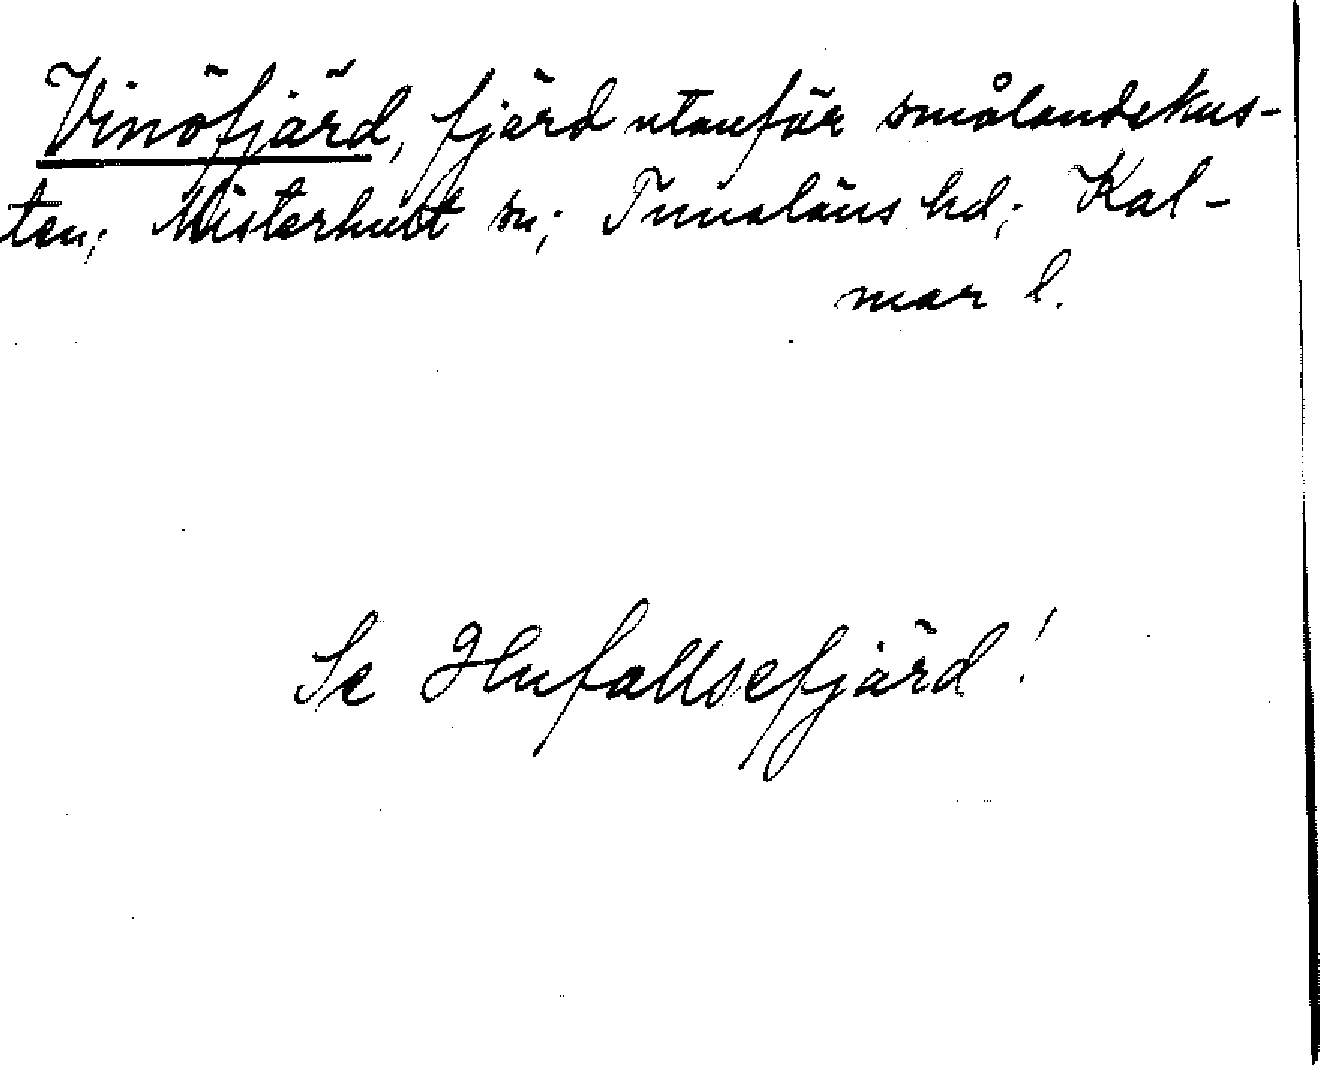 Vinöfjärd, fjärd utanför smålandskus-
ten; Misterhult sn; Tunaläns hd; Kal-
mar l.
Se Hufallsefjärd!